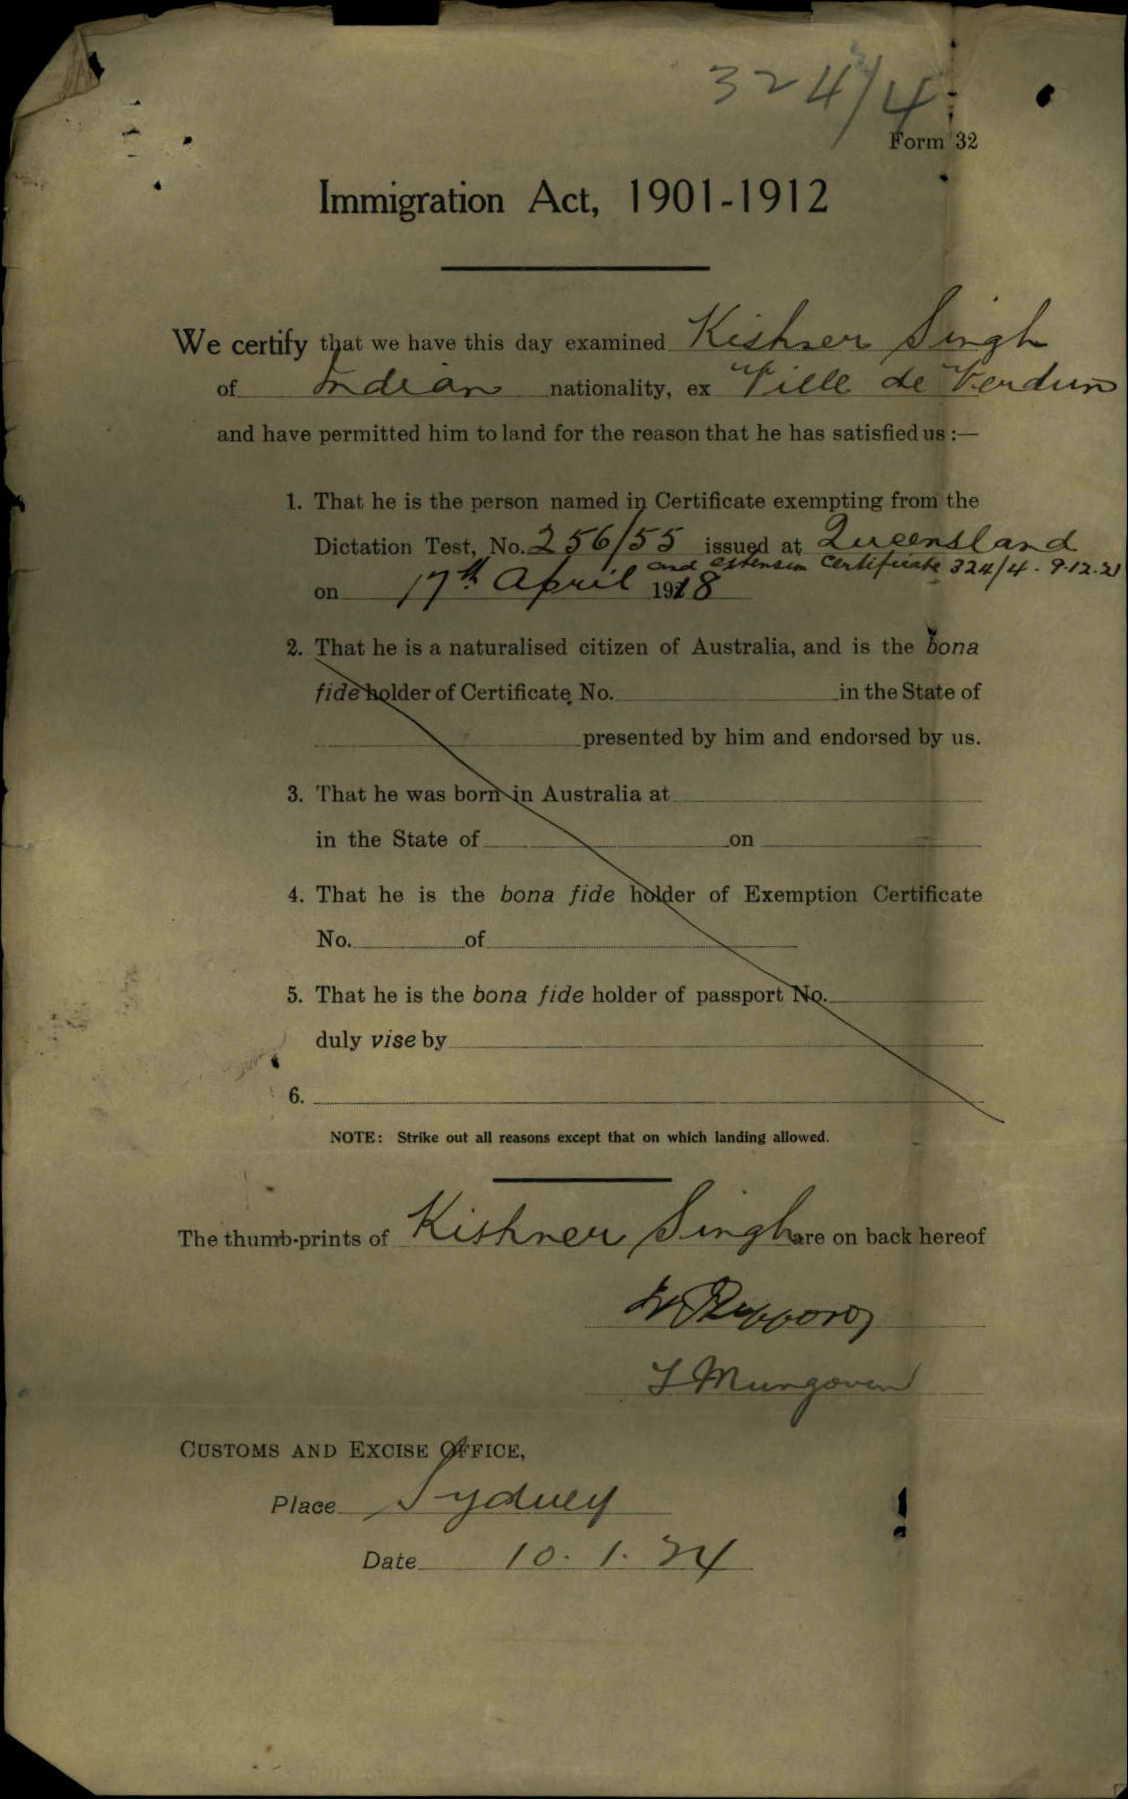 324/4
Form 32
Immigration Act, 1901-1912
We certify that we have this day examined Kishner Singh
of Indian nationality, ex Ville de Verdun
and have permitted him to land for the reason that he has satisfied us :—
1. That he is the person named in Certificate exempting from the
Dictation Test, No. 256/55 issued at Queensland
and extension Certificate 324/4 - 9.12.21
on 17th April 1918
2. That he is a naturalised citizen of Australia, and is the bona
fide holder of Certificate No. in the State of
presented by him and endorsed by us.
3. That he was born in Australia at
in the State of on
4. That he is the bona fide holder of Exemption Certificate
No. of
5. That he is the bona fide holder of passport No.
duly vise by
6.
NOTE: Strike out all reasons except that on which landing allowed.
The thumb-prints of Kishner Singh are on back hereof
Mungoven
CUSTOMS AND EXCISE OFFICE,
Place Sydney
Date 10. 1. 24